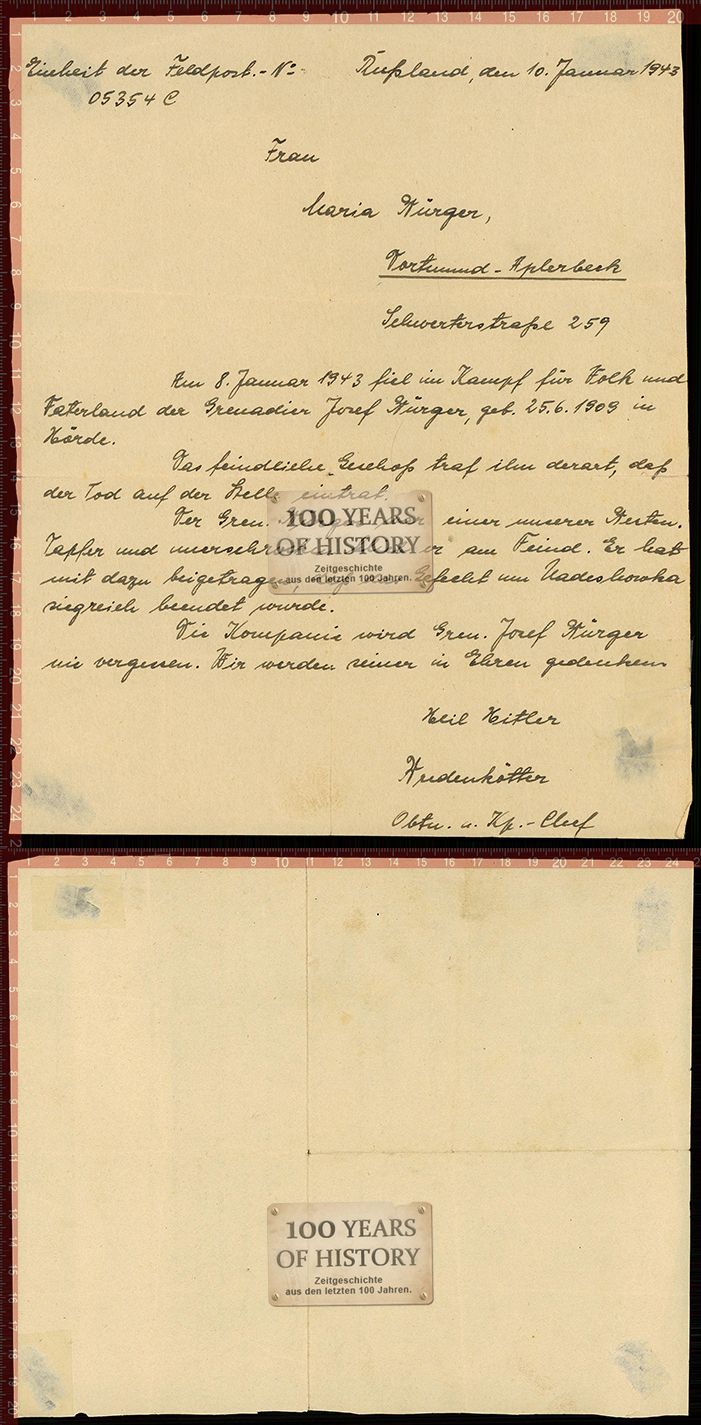 Einheit der Feldpost.-No Rußland, den 10. Januar 1943
05354 C
Frau
Maria Würger,
Dortmund-Aplerbeck
Schwerterstraße 259
Am 8. Januar 1943 fiel im Kampf für Volk und
Vaterland der Grenadier Josef Würger, geb. 25.6.1909 in
Hörde.
Das feindliche Geschoß traf ihn derart, daß
der Tod auf der Stelle eintrat.
Der Gren. einer unserer Besten.
Tapfer und am Feind. Er hat
mit dazu beigetragen, Gefecht um Nadeshowka
siegreich beendet wurde.
Die Kompanie wird Gren. Josef Würger
nie vergessen. Wir werden seiner in Ehren gedenken.
Heil Hitler
Obtn. u. Kp.-Chef
100 YEARS
OF HISTORY
Zeitgeschichte
aus den letzten 100 Jahren.
100 YEARS
OF HISTORY
Zeitgeschichte
aus den letzten 100 Jahren.